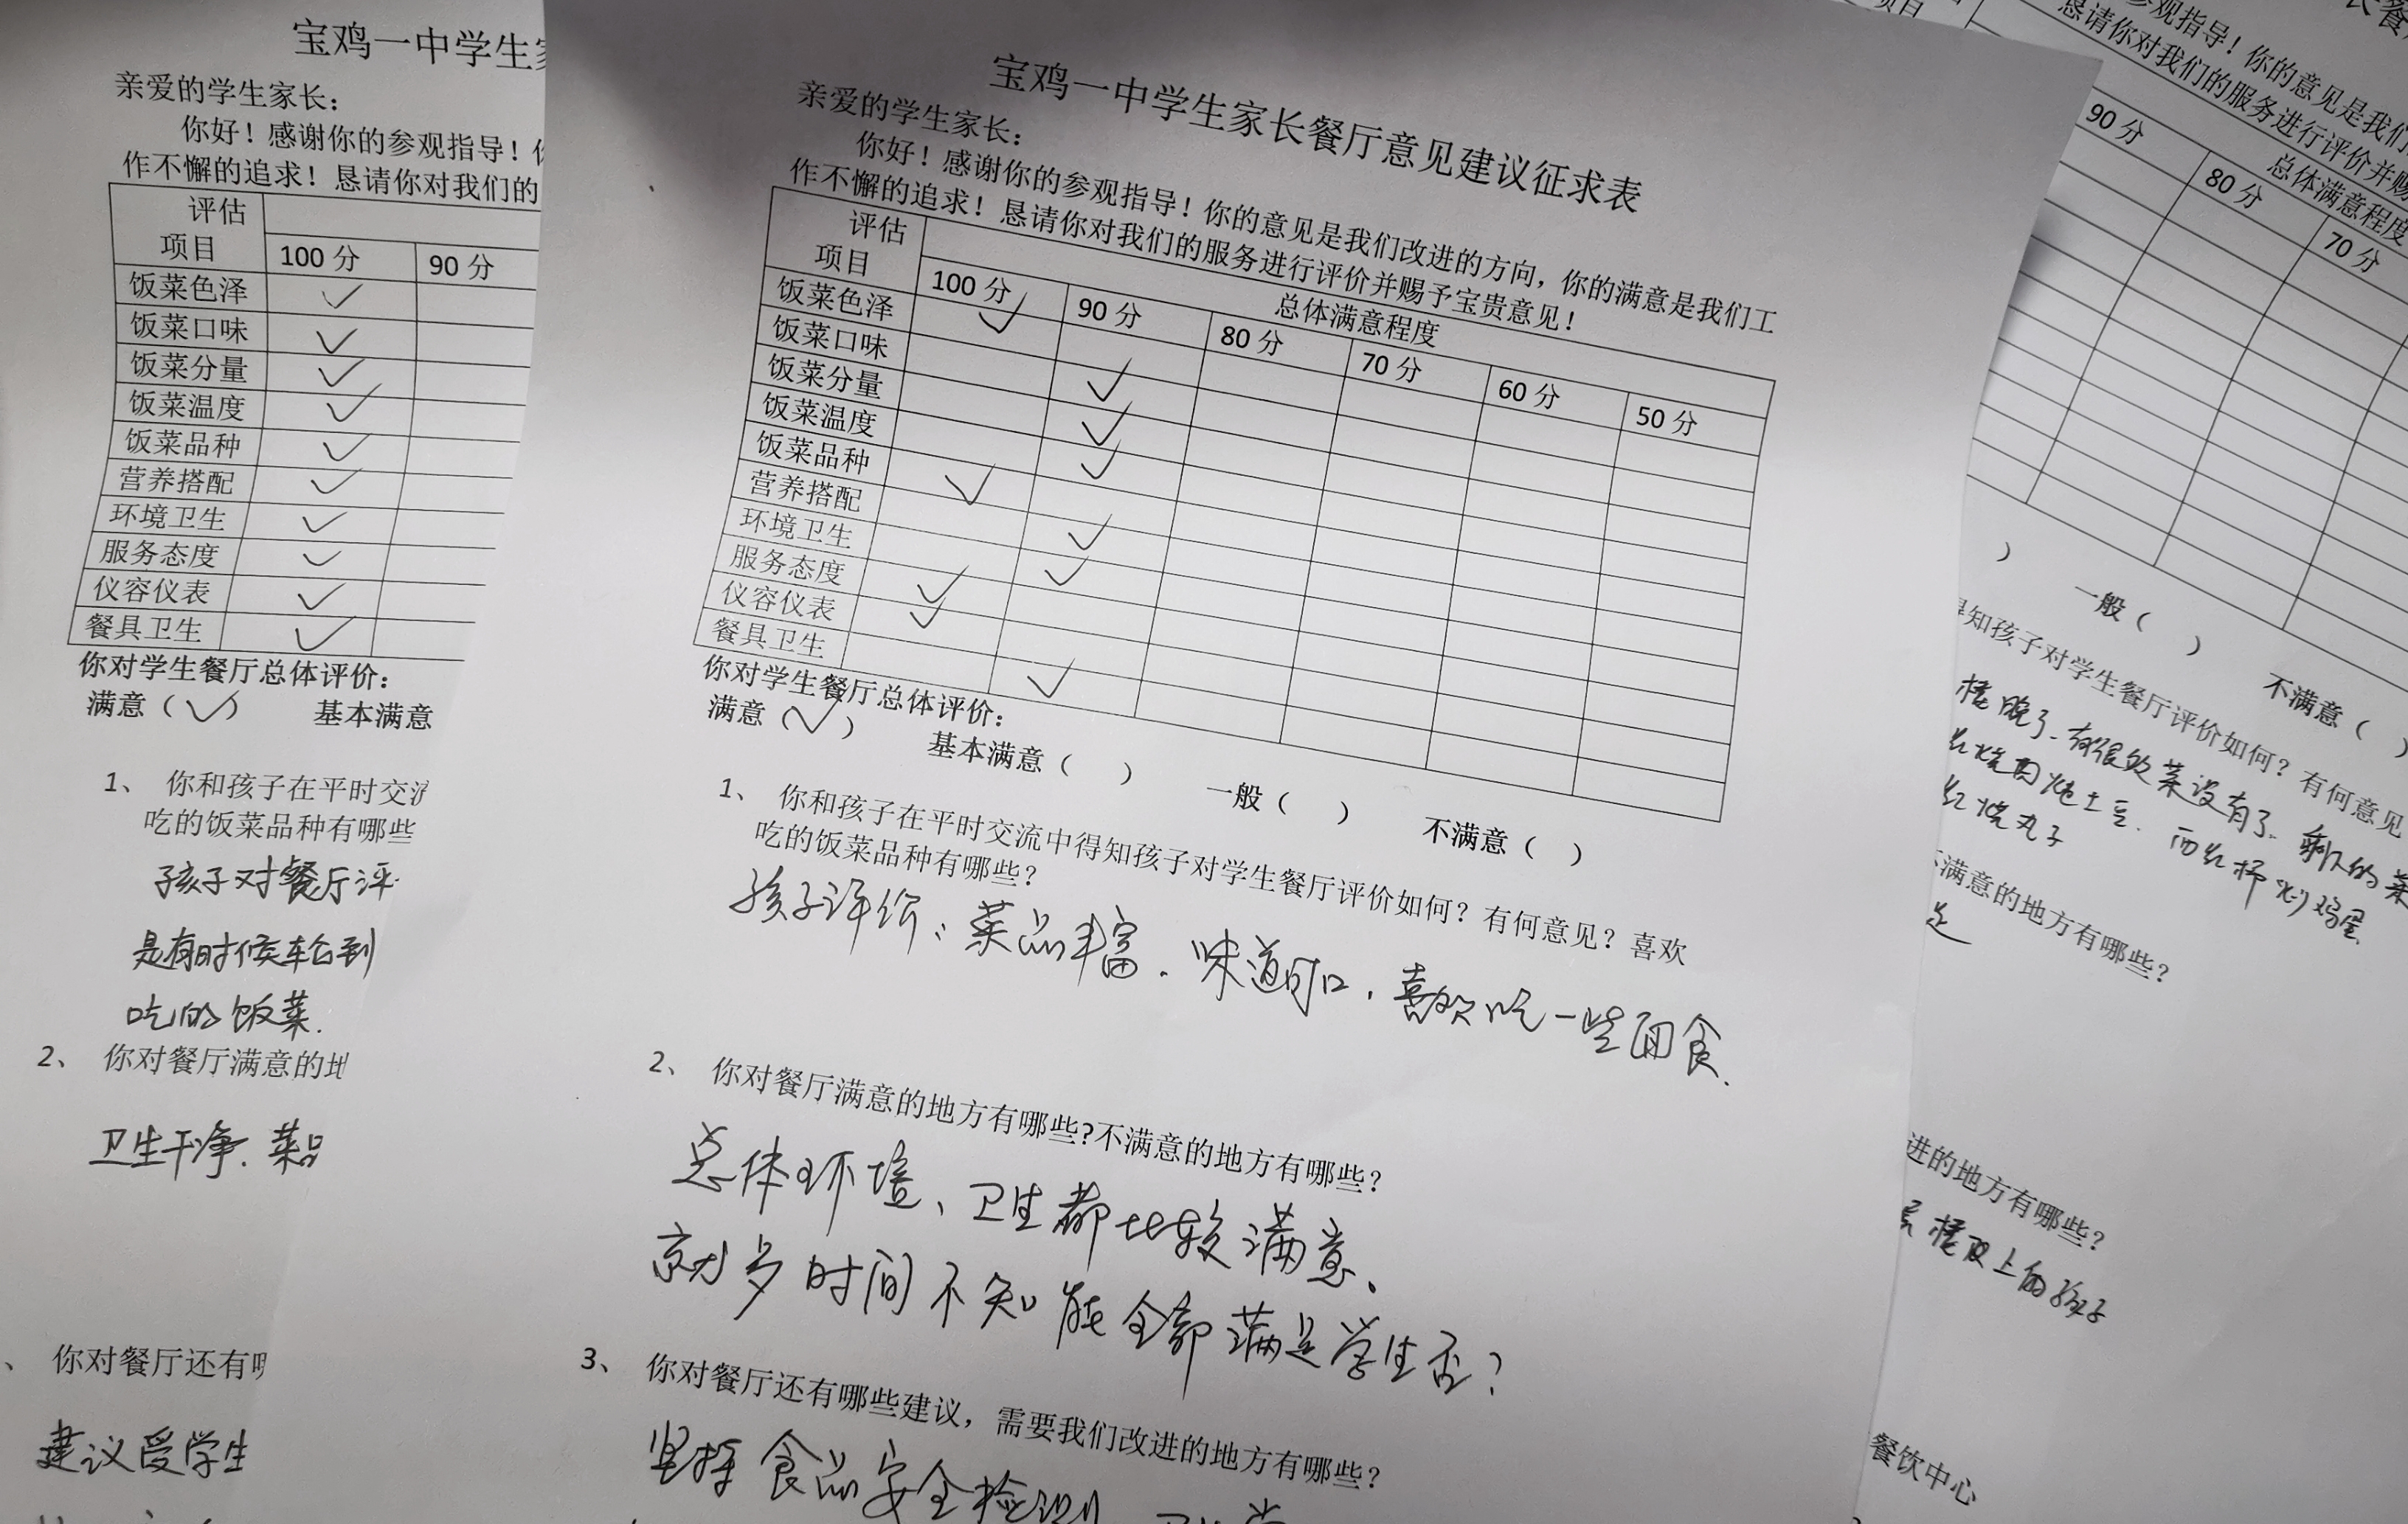 宝鸡一中学生家
亲爱的学生家长：
你好！感谢你的参观指导！
作不懈的追求！恳请你对我们的
评估
项目
100 分 90 分
饭菜色泽 ✓
饭菜口味 ✓
饭菜分量 ✓
饭菜温度 ✓
饭菜品种 ✓
营养搭配 ✓
环境卫生 ✓
服务态度 ✓
仪容仪表 ✓
餐具卫生 ✓
你对学生餐厅总体评价：
满意（✓） 基本满意
1、 你和孩子在平时交流
吃的饭菜品种有哪些
孩子对餐厅评
是有时候车台到
吃的饭菜.
2、 你对餐厅满意的地
卫生干净. 菜品
、 你对餐厅还有哪
建议受学生
宝鸡一中学生家长餐厅意见建议征求表
亲爱的学生家长：
你好！感谢你的参观指导！你的意见是我们改进的方向，你的满意是我们工
作不懈的追求！恳请你对我们的服务进行评价并赐予宝贵意见！
评估 总体满意程度
项目 100 分 90 分 80 分 70 分 60 分 50 分
饭菜色泽 ✓
饭菜口味 ✓
饭菜分量 ✓
饭菜温度 ✓
饭菜品种 ✓
营养搭配 ✓
环境卫生 ✓
服务态度 ✓
仪容仪表 ✓
餐具卫生 ✓
你对学生餐厅总体评价：
满意（✓） 基本满意（ ） 一般（ ） 不满意（ ）
1、 你和孩子在平时交流中得知孩子对学生餐厅评价如何？有何意见？喜欢
吃的饭菜品种有哪些？
孩子评价：菜品丰富. 味道可口，喜欢吃一些面食.
2、 你对餐厅满意的地方有哪些?不满意的地方有哪些？
总体环境、卫生都比较满意、
就多时间不知能全部满足学生否？
3、 你对餐厅还有哪些建议，需要我们改进的地方有哪些？
坚持食品安全检测
项目
观指导！你的意见是我们
恳请你对我们的服务进行评价并赐
总体满意程度
90 分 80 分 70 分
） 一般（ ） 不满意（ ）
得知孩子对学生餐厅评价如何？有何意见
楼晚了.有很多菜没有了. 剩下的菜
红烧肉炖土豆. 西红柿炒鸡蛋
红烧丸子
不满意的地方有哪些？
足
进的地方有哪些？
楼及上的孩子
餐饮中心